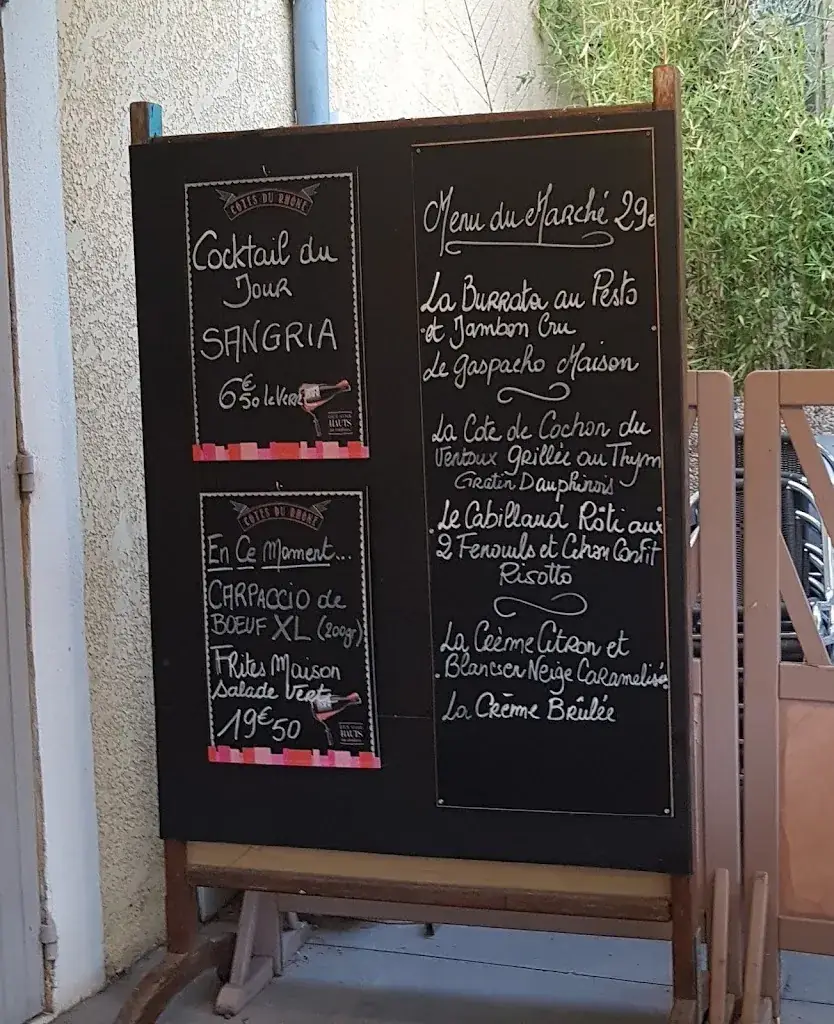 CÔTES DU RHÔNE
Cocktail du
Jour
SANGRIA
6€50 le Verre
HAUTS
CÔTES DU RHÔNE
En Ce Moment...
CARPACCIO de
BOEUF XL (200gr)
Frites Maison
Salade Verte
19€50
HAUTS
Menu du Marché 29€
La Burrata au Pesto
et Jambon Cru
Le gaspacho Maison
La Cote de Cochon du
Ventoux grillée au Thym
Gratin Dauphinois
Le Cabillaud Rôti aux
2 Fenouils et Citron Confit
Risotto
La Crème Citron et
Blancs en Neige Caramelisés
La Crème Brûlée